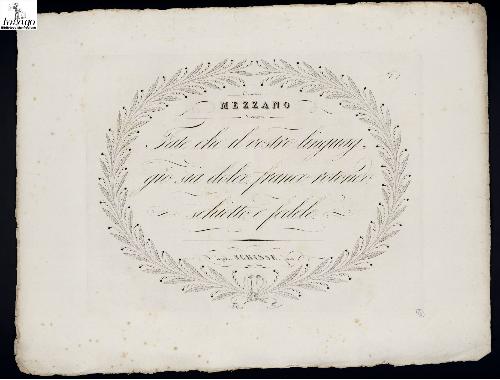 MEZZANO
Fate che il vostro linguag
gio sia dolce, franco
schietto e fedele
SCRISSE